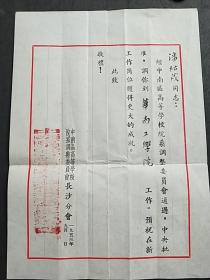 同志：
經中南區高等學校院系調整委員會通過，中央批
准，調你到 華南工學院 工作。預祝在新
工作崗位獲得更大的成就。
此致
敬禮！
中南區高等學校
院系調整委員會
長沙分會
一九五三年
月 日